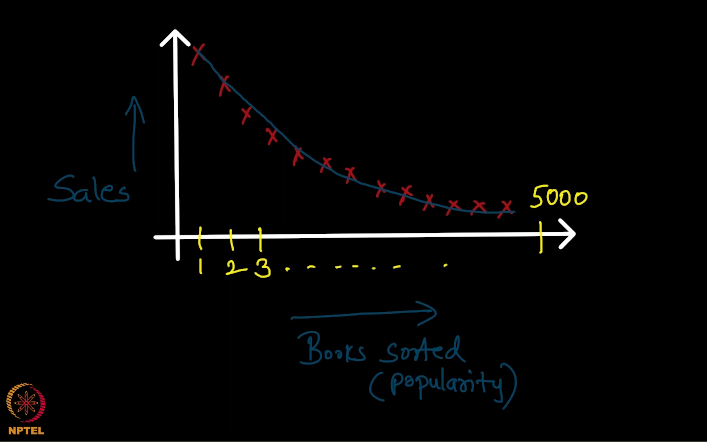 Sales
5000
1 2 3 . - - - - - - .
Books sorted
(popularity)
NPTEL